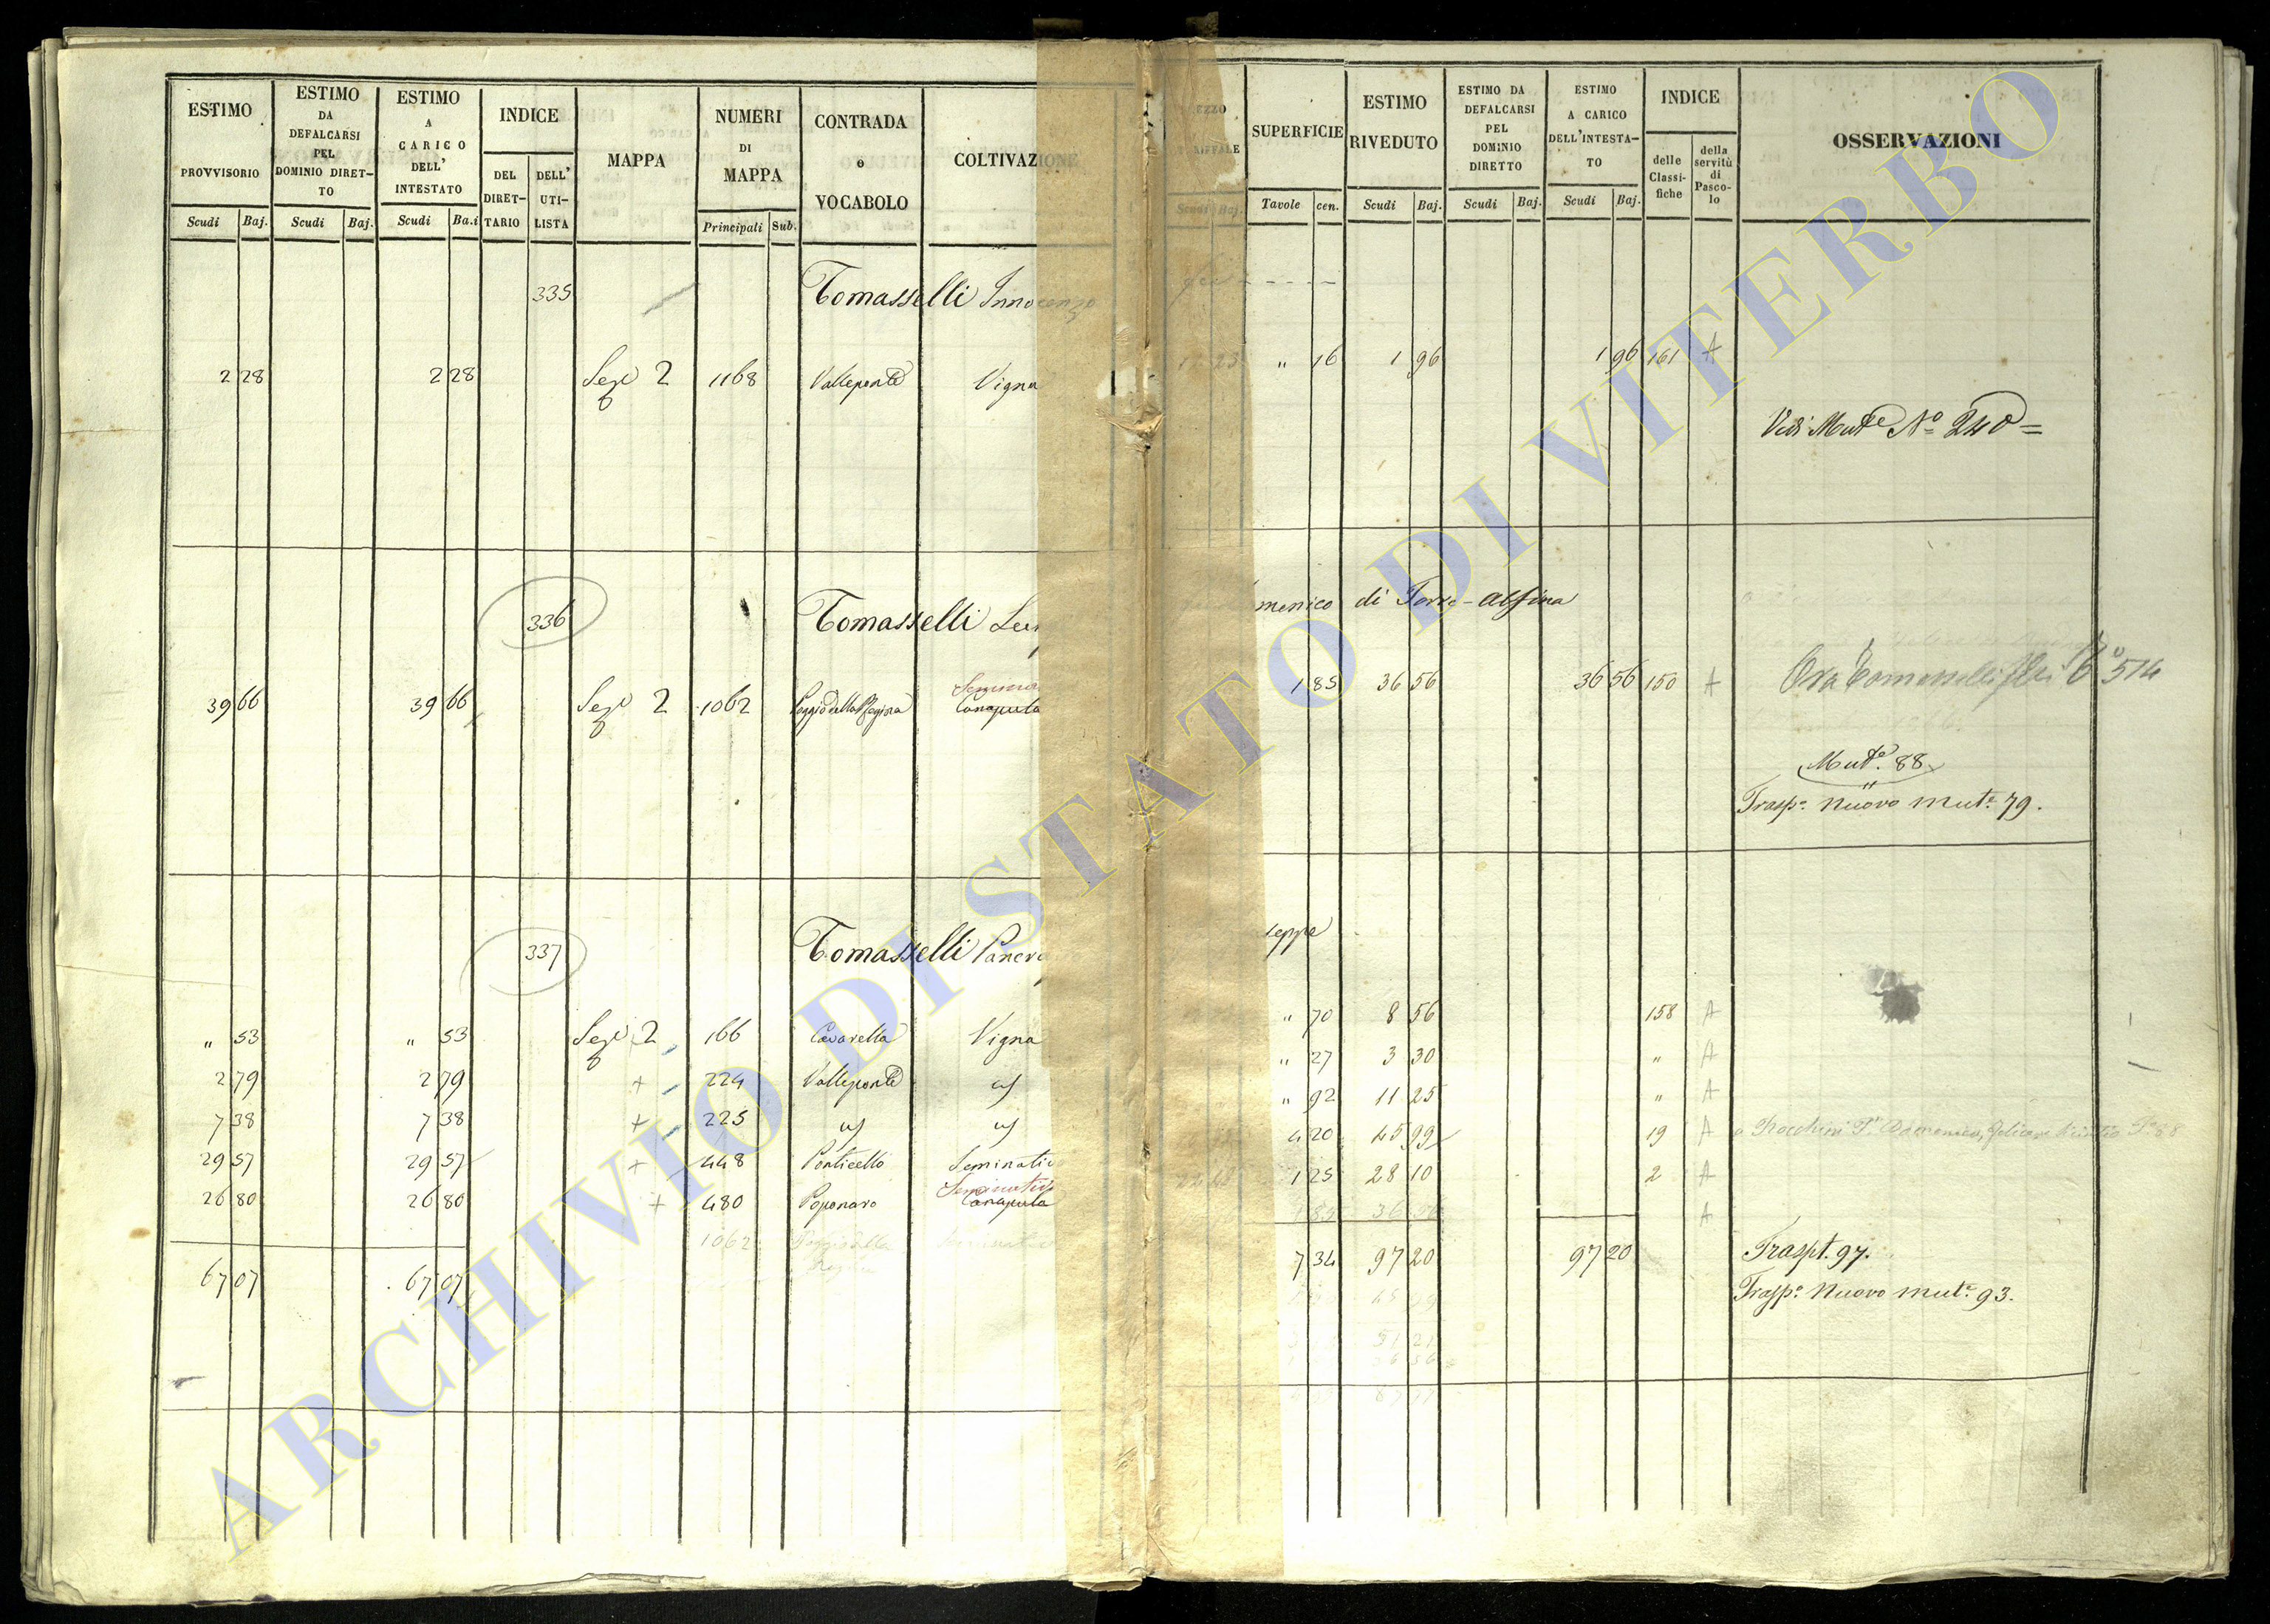 ESTIMO PROVVISORIO Scudi Baj.
ESTIMO DA DEFALCARSI PEL DOMINIO DIRET-TO Scudi Baj.
ESTIMO A CARICO DELL' INTESTATO Scudi Ba.i
INDICE DEL DIRET-TARIO DELL' UTI-LISTA
MAPPA
NUMERI DI MAPPA Principali Sub.
CONTRADA o VOCABOLO
COLTIVAZIONE
SUPERFICIE Tavole cen.
ESTIMO RIVEDUTO Scudi Baj.
ESTIMO DA DEFALCARSI PEL DOMINIO DIRETTO Scudi Baj.
ESTIMO A CARICO DELL'INTESTA-TO Scudi Baj.
INDICE delle Classi-fiche della servitù di Pasco-lo
OSSERVAZIONI
335 Tomasselli Innocenzo
2 28 2 28 Sez.e 2 1168 Valleponte Vigna " 16 1 96 1 96 161 A
Vedi Mut.e N.o 240=
336 Tomasselli menico di Torre-alfina
39 66 39 66 Sez.e 2 1062 Poggio della Regina Canapula 1 85 36 56 36 56 150 A
Ora Tomasselli 514
Mut.e 88
Trasp.o Nuovo mut.e 79.
337 Tomasselli seppe
" 53 " 53 Sez.e 2 166 Cavarella Vigna " 70 8 56 158 A
2 79 2 79 + 224 Valleponte " 27 3 30 " A
7 38 7 38 + 225 " 92 11 25 " A
29 57 29 57 + 448 Ponticello Seminativo 4 20 45 99 19 A
26 80 26 80 + 480 Poponaro Seminativo Canapula 1 25 28 10 2 A
1062 A
67 07 67 07 7 34 97 20 97 20 Traspt. 97.
Trasp.o Nuovo mut.e 93.
ARCHIVIO DI STATO DI VITERBO